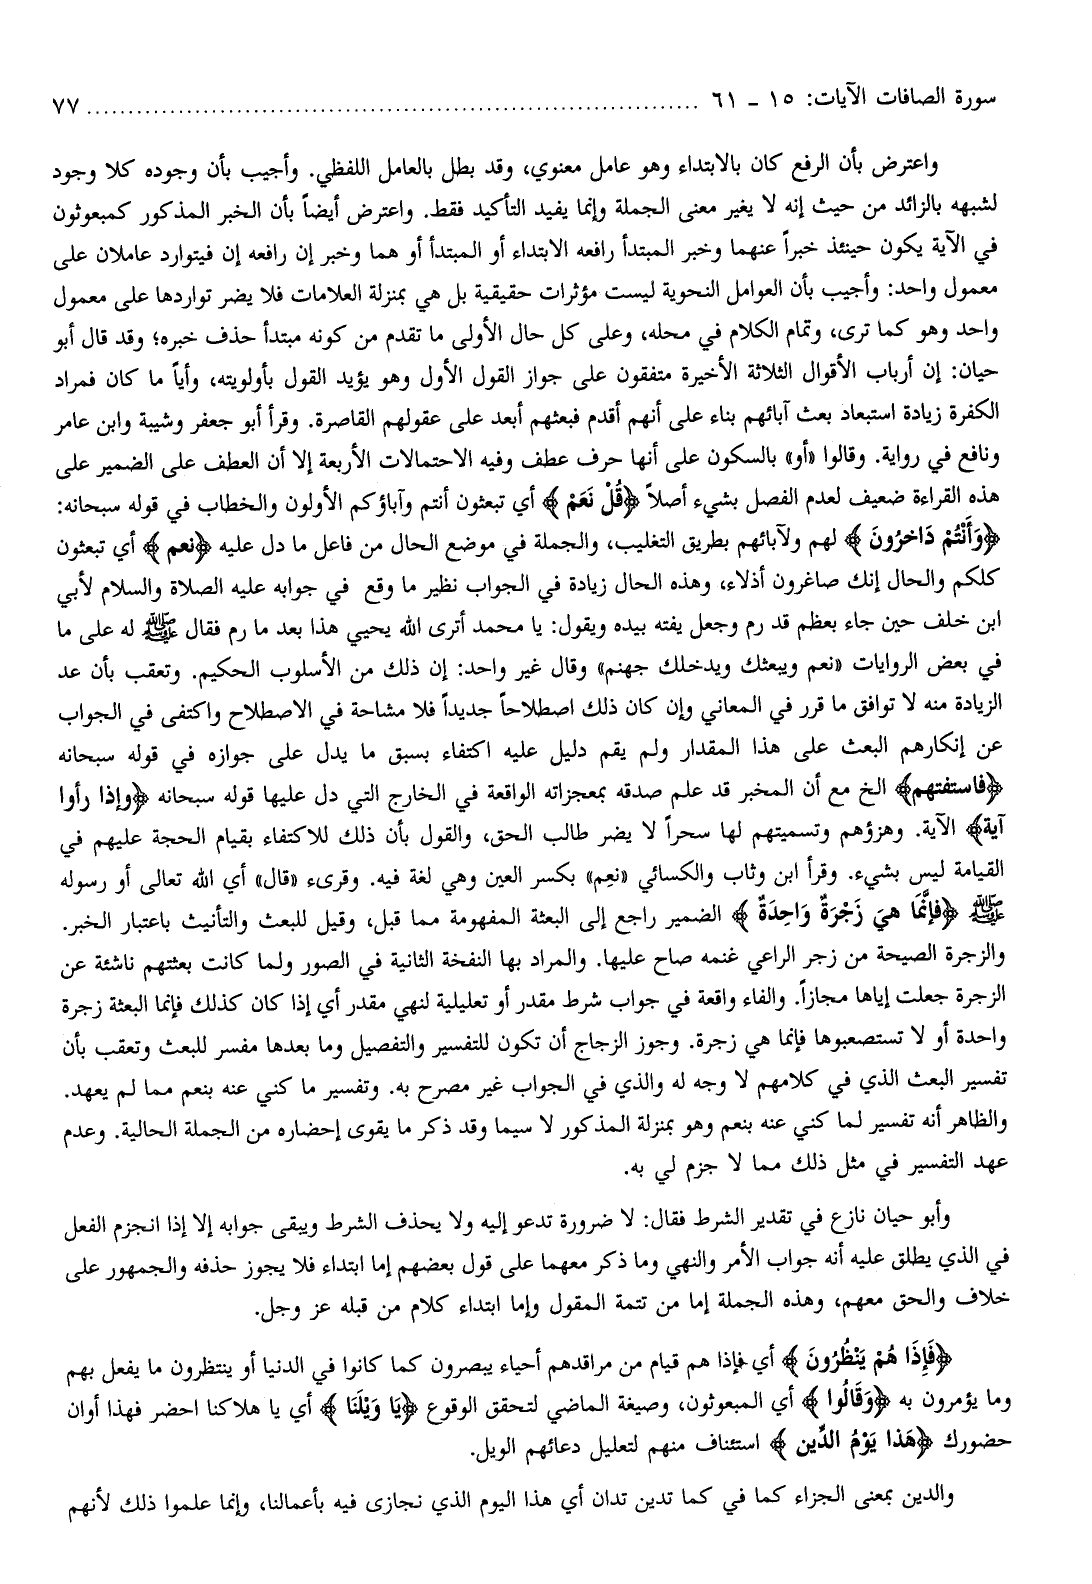 سورة الصافات الآيات: ١٥ - ٦١ ........................................ ٧٧
واعترض بأن الرفع كان بالابتداء وهو عامل معنوي، وقد بطل بالعامل اللفظي. وأجيب بأن وجوده كلا وجود
لشبهه بالزائد من حيث إنه لا يغير معنى الجملة وإنما يفيد التأكيد فقط. واعترض أيضاً بأن الخبر المذكور كمبعوثون
في الآية يكون حينئذ خبراً عنهما وخبر المبتدأ رافعه الابتداء أو المبتدأ أو هما وخبر إن رافعه إن فيتوارد عاملان على
معمول واحد: وأجيب بأن العوامل النحوية ليست مؤثرات حقيقية بل هي بمنزلة العلامات فلا يضر تواردها على معمول
واحد وهو كما ترى، وتمام الكلام في محله، وعلى كل حال الأولى ما تقدم من كونه مبتدأ حذف خبره؛ وقد قال أبو
حيان: إن أرباب الأقوال الثلاثة الأخيرة متفقون على جواز القول الأول وهو يؤيد القول بأولويته، وأياً ما كان فمراد
الكفرة زيادة استبعاد بعث آبائهم بناء على أنهم أقدم فبعثهم أبعد على عقولهم القاصرة. وقرأ أبو جعفر وشيبة وابن عامر
ونافع في رواية. وقالوا «أو» بالسكون على أنها حرف عطف وفيه الاحتمالات الأربعة إلا أن العطف على الضمير على
هذه القراءة ضعيف لعدم الفصل بشيء أصلاً ﴿قُلْ نَعَمْ﴾ أي تبعثون أنتم وآباؤكم الأولون والخطاب في قوله سبحانه:
﴿وَأَنْتُمْ دَاخرُونَ﴾ لهم ولآبائهم بطريق التغليب، والجملة في موضع الحال من فاعل ما دل عليه ﴿نعم﴾ أي تبعثون
كلكم والحال إنك صاغرون أذلاء، وهذه الحال زيادة في الجواب نظير ما وقع في جوابه عليه الصلاة والسلام لأبي
ابن خلف حين جاء بعظم قد رم وجعل يفته بيده ويقول: يا محمد أترى الله يحيي هذا بعد ما رم فقال ﷺ له على ما
في بعض الروايات «نعم ويبعثك ويدخلك جهنم» وقال غير واحد: إن ذلك من الأسلوب الحكيم. وتعقب بأن عد
الزيادة منه لا توافق ما قرر في المعاني وإن كان ذلك اصطلاحاً جديداً فلا مشاحة في الاصطلاح واكتفى في الجواب
عن إنكارهم البعث على هذا المقدار ولم يقم دليل عليه اكتفاء بسبق ما يدل على جوازه في قوله سبحانه
﴿فاستفتهم﴾ الخ مع أن المخبر قد علم صدقه بمعجزاته الواقعة في الخارج التي دل عليها قوله سبحانه ﴿وإذا رأوا
آية﴾ الآية. وهزؤهم وتسميتهم لها سحراً لا يضر طالب الحق، والقول بأن ذلك للاكتفاء بقيام الحجة عليهم في
القيامة ليس بشيء. وقرأ ابن وثاب والكسائي «نعِم» بكسر العين وهي لغة فيه. وقرىء «قال» أي الله تعالى أو رسوله
ﷺ ﴿فإنَّمَا هيَ زَجْرَةٌ وَاحِدَةٌ﴾ الضمير راجع إلى البعثة المفهومة مما قبل، وقيل للبعث والتأنيث باعتبار الخبر.
والزجرة الصيحة من زجر الراعي غنمه صاح عليها. والمراد بها النفخة الثانية في الصور ولما كانت بعثتهم ناشئة عن
الزجرة جعلت إياها مجازاً. والفاء واقعة في جواب شرط مقدر أو تعليلية لنهي مقدر أي إذا كان كذلك فإنما البعثة زجرة
واحدة أو لا تستصعبوها فإنما هي زجرة. وجوز الزجاج أن تكون للتفسير والتفصيل وما بعدها مفسر للبعث وتعقب بأن
تفسير البعث الذي في كلامهم لا وجه له والذي في الجواب غير مصرح به. وتفسير ما كني عنه بنعم مما لم يعهد.
والظاهر أنه تفسير لما كني عنه بنعم وهو بمنزلة المذكور لا سيما وقد ذكر ما يقوى إحضاره من الجملة الحالية. وعدم
عهد التفسير في مثل ذلك مما لا جزم لي به.
وأبو حيان نازع في تقدير الشرط فقال: لا ضرورة تدعو إليه ولا يحذف الشرط ويبقى جوابه إلا إذا انجزم الفعل
في الذي يطلق عليه أنه جواب الأمر والنهي وما ذكر معهما على قول بعضهم إما ابتداء فلا يجوز حذفه والجمهور على
خلاف والحق معهم، وهذه الجملة إما من تتمة المقول وإما ابتداء كلام من قبله عز وجل.
﴿فَإِذَا هُمْ يَنْظُرُونَ﴾ أي فإذا هم قيام من مراقدهم أحياء يبصرون كما كانوا في الدنيا أو ينتظرون ما يفعل بهم
وما يؤمرون به ﴿وَقَالُوا﴾ أي المبعوثون، وصيغة الماضي لتحقق الوقوع ﴿يَا وَيْلَنَا﴾ أي يا هلاكنا احضر فهذا أوان
حضورك ﴿هَذا يَوْمُ الدِّين﴾ استئناف منهم لتعليل دعائهم الويل.
والدين بمعنى الجزاء كما في كما تدين تدان أي هذا اليوم الذي نجازى فيه بأعمالنا، وإنما علموا ذلك لأنهم